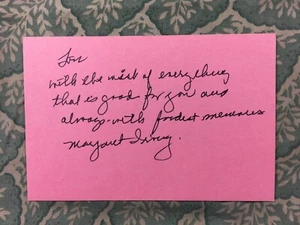 with the most of everything
that is good for you and
always with fondest memories
Margaret